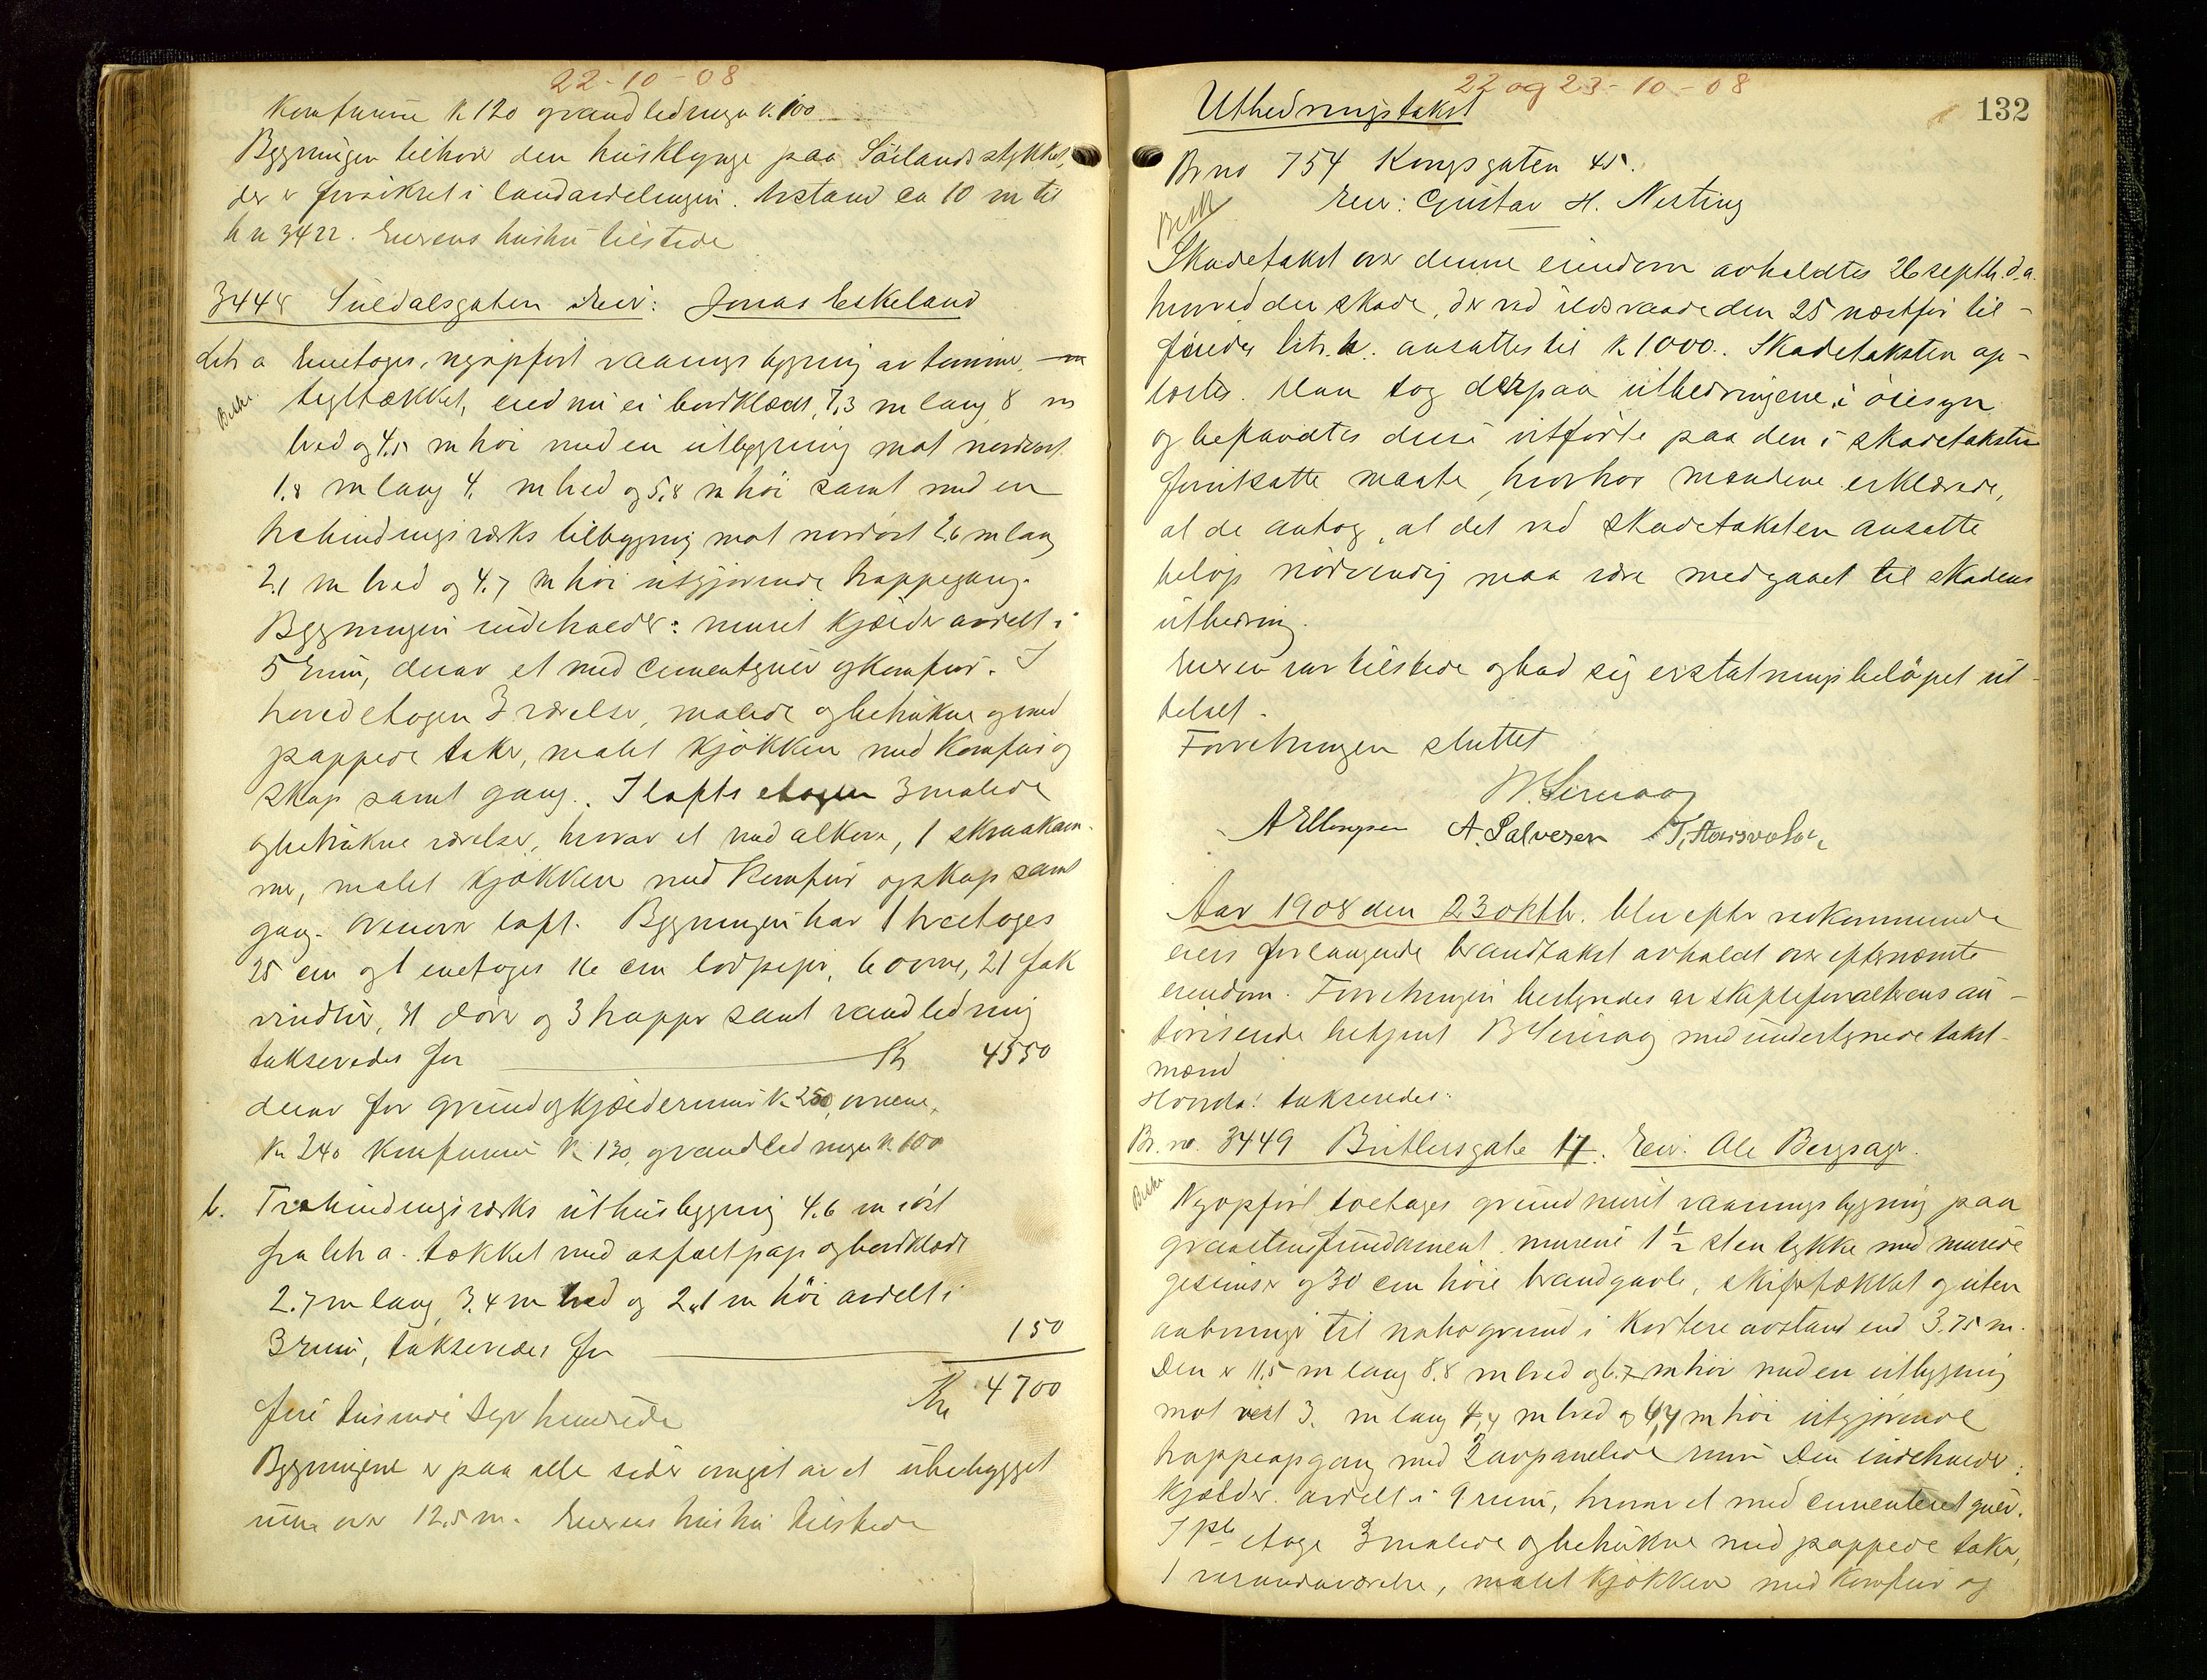 22-10-08
Komfurene k 120 og vandledningen k. 100
Bygningen tilhører den husklynge paa Söilandsstykket,
der er forsikret i landavdelingen. Avstand ca 10 m til
br n 3422. Eierens hustru tilstede
3448 Suldalsgaten Eier: Jonas Eskeland
Litr a Enetages, nyopført vaanings bygning av tømmer,
Besk.
tegltækket, endnu ei bordklædt, 7,3 m lang 8 m
bred og 4,5 m høi med en utbygning mot nordvest
1,8 m lang 4, m bred og 5,8 m høi samt med en
trebindingsverks tilbygning mot nordøst 2,6 m lang
2,1 m bred og 4,7 m høi utgjørende trappegang.
Bygningen indeholder: muret kjælder avdelt i
5 rum, derav et med cementgulv og komfur. I
hovedetagen 3 værelser, malede og betrukne og med
pappede taker, malet kjøkken med komfur og
skap samt gang. I loftsetagen 3 malede
og betrukne værelser, hvorav et med alkove, 1 skraakam-
mer, malet kjøkken med komfur og skap samt
gang. Ovenover loft. Bygningen har 1 treetages
25 cm og 1 enetages 16 cm lodpipe, 6 ovne, 21 fak
vinduer, 31 døre og 3 trapper samt vandledning
takseredes for Kr 4550
derav for grund og kjældermur k 250, ovnene
k 240 komfurene k 130, og vandledningen k 100
b. Trebindingsverks uthusbygning 4.6 m øst
fra litr a. tækket med asfaltpap og bordklædt
2.7 m lang, 3.4 m bred og 2,1 m höi avdelt i
3 rum, takseredes for 150
Kr 4700
fire tusinde syv hundrede
Bygningene er paa alle sider omgit av et ubebygget
rum over 12.5 m. Eierens hustru tilstede
22 og 23-10-08
132
Utbedringstakst
Br no 754 Kongsgaten 45.
Besk
Eier: Gustav H. Nesting
Skadetakst over denne eiendom avholdtes 26 septbr. d.a.
hvorved den skade, der ved ildsvaade den 25 næstfør til-
føiedes litr. a. ansattes til k 1000. Skadetaksten op-
læstes. Man tog derpaa utbedringene i øiesyn
og befandtes disse utførte paa den i skadetaksten
forutsatte maate, hvorhos mændene erklærede,
at de antog, at det ved skadetaksten ansatte
beløp nødvendig maa være medgaaet til skadens
utbedring.
Eieren var tilstede og bad sig erstatningsbeløpet ut-
betalt.
Forretningen sluttet
A Ellingsen A. Salvesen
Aar 1908 den 23 oktbr. blev efter vedkommende
eiers forlangende brandtakst avholdt over efternævnte
eiendom. Forretningen bestyredes av skifteforvalterens au-
toriserede betjent med undertegnede takst-
mænd
Hvorda: takseredes:
Br. no. 3449 Butlersgate 17. Eier: Ole Bergsage.
Beskr
Nyopført toetages grundmuret vaanings bygning paa
graastensfundament. murene 1 1/2 sten tykke med murede
gesimser og 30 cm høie brandgavle, skifertækket og uten
aabninger til nabogrund i kortere avstand end 3.75 m.
Den er 11,5 m lang 8.8 m bred og 6.7 m høi med en utbygning
mot vest 3. m lang 4,4 m bred og 4,4 m høi utgjørende
trappeopgang med 2 avpanelede rum Den indeholder:
Kjælder. avdelt i 9 rum, hvorav et med cementeret gulv.
I 1ste etage 3 malede og betrukne med pappede taker,
1 verandaværelse, malet kjøkken med komfur og